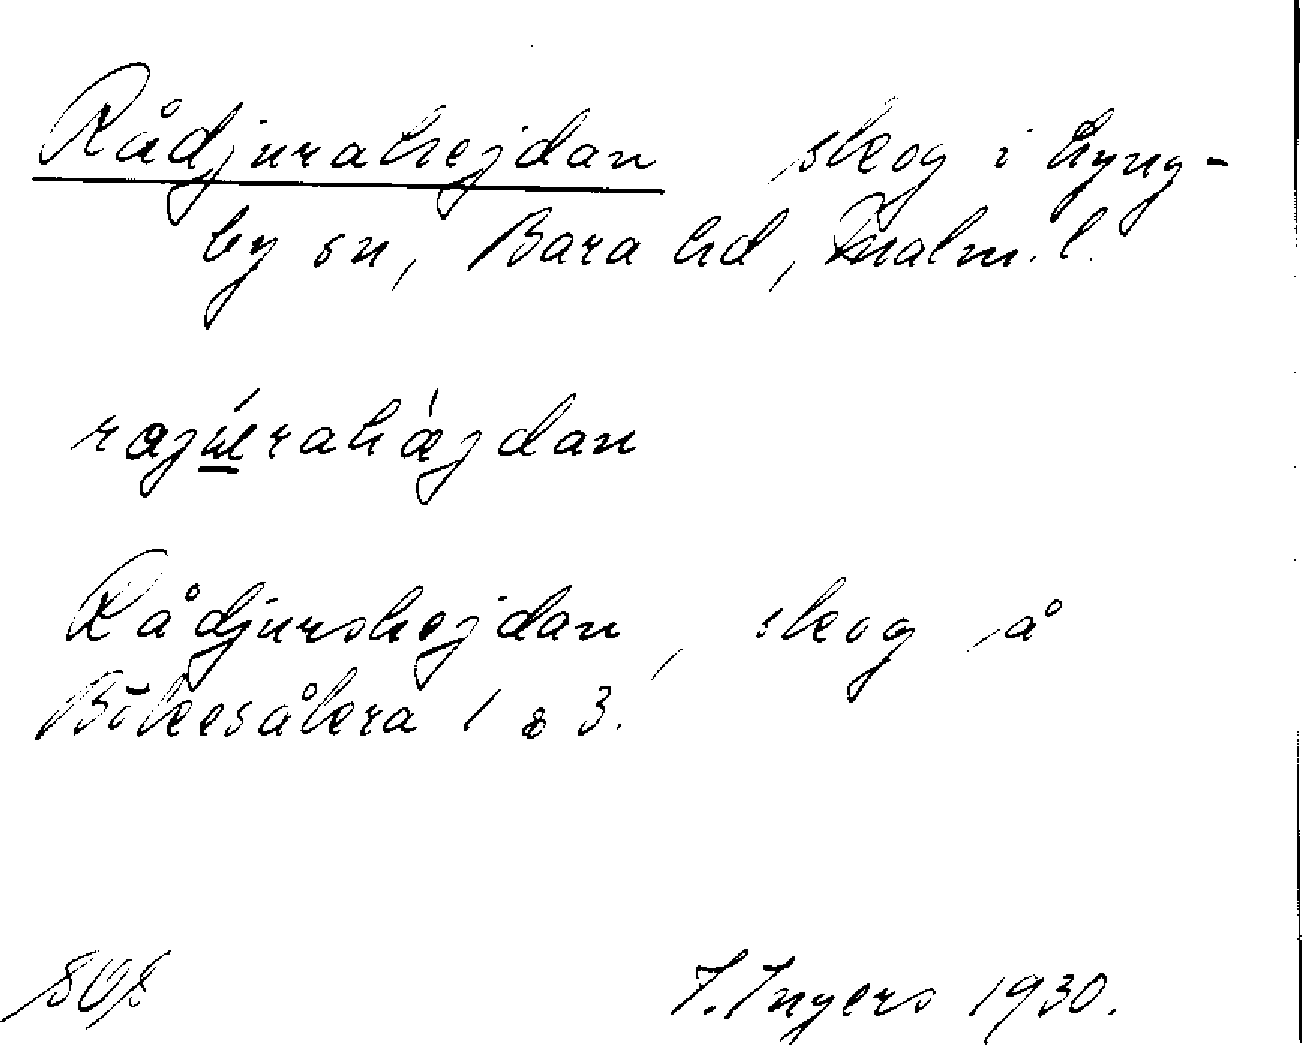 Rådjurahejdan skog i Lyng-
by sn, Bara hd, Malm. l.
rajúrahǽjdan
Rådjurshejdan, skog på
Bökesåkra 1 & 3.
I. Ingers 1930.